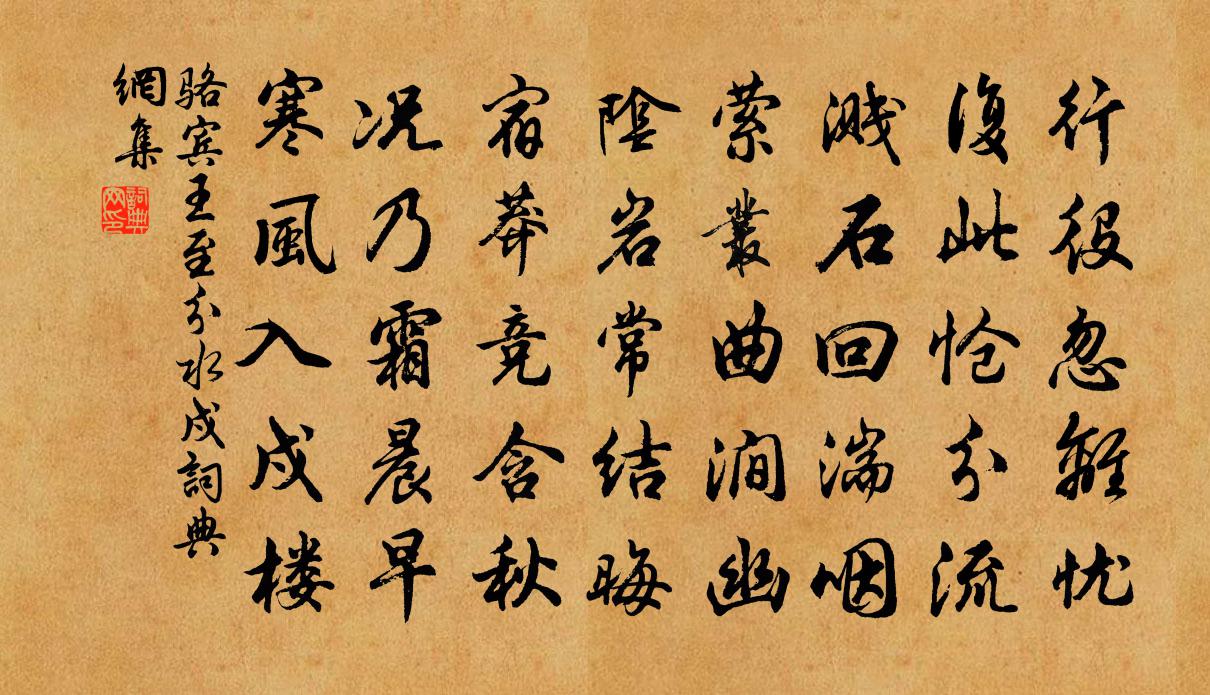 行役忽離忧
復此怆分流
溅石回湍咽
萦叢曲澗幽
陰岩常结晦
宿莽竞含秋
况乃霜晨早
寒風入戍楼
骆宾王至分水戍詞典
網集
詞典
网印